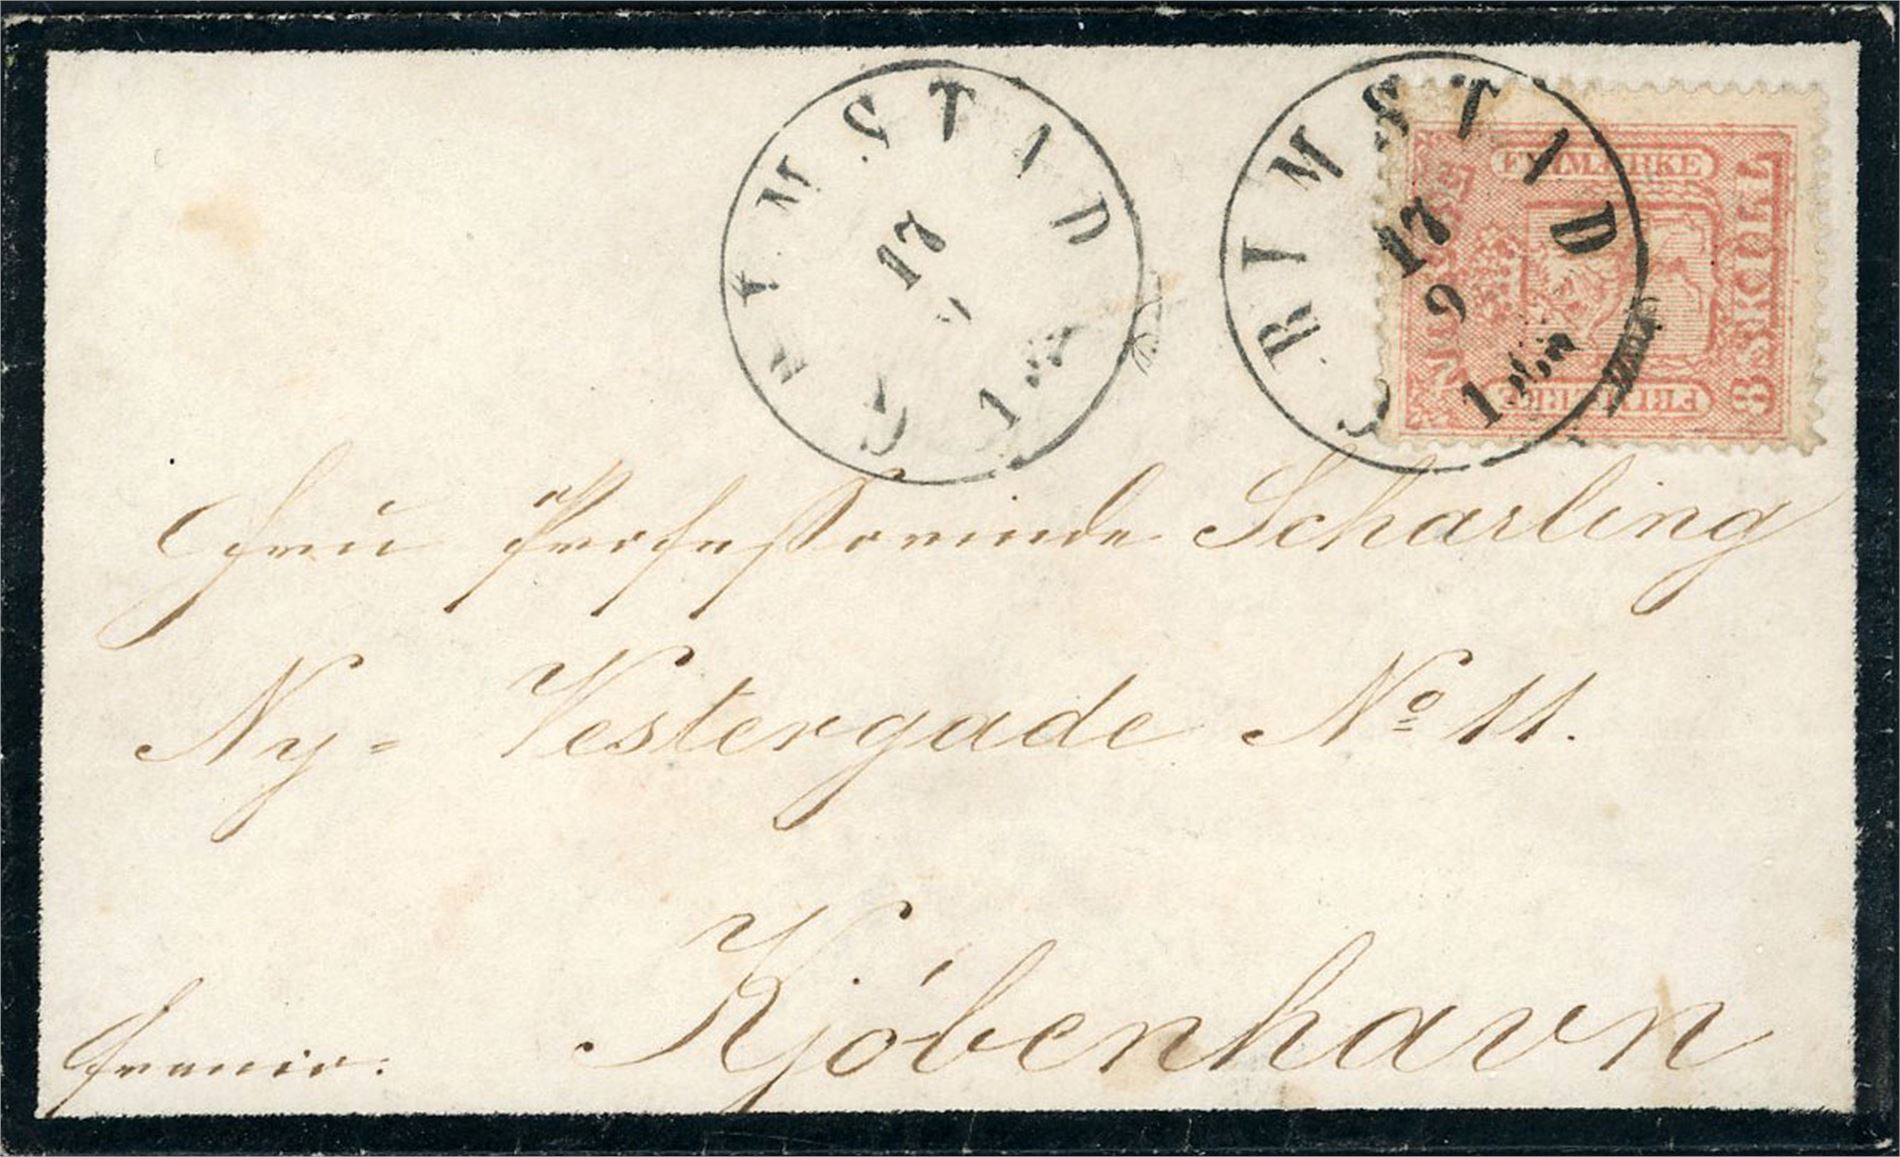 GRIMSTAD
17
9
GRIMSTAD
17
9
FRIMÆRKE
NORGE
8 SKILL.
FRIMÆRKE
Frue Professorinde Scharling
Ny= Vestergade No 11.
Kjöbenhavn
franco.